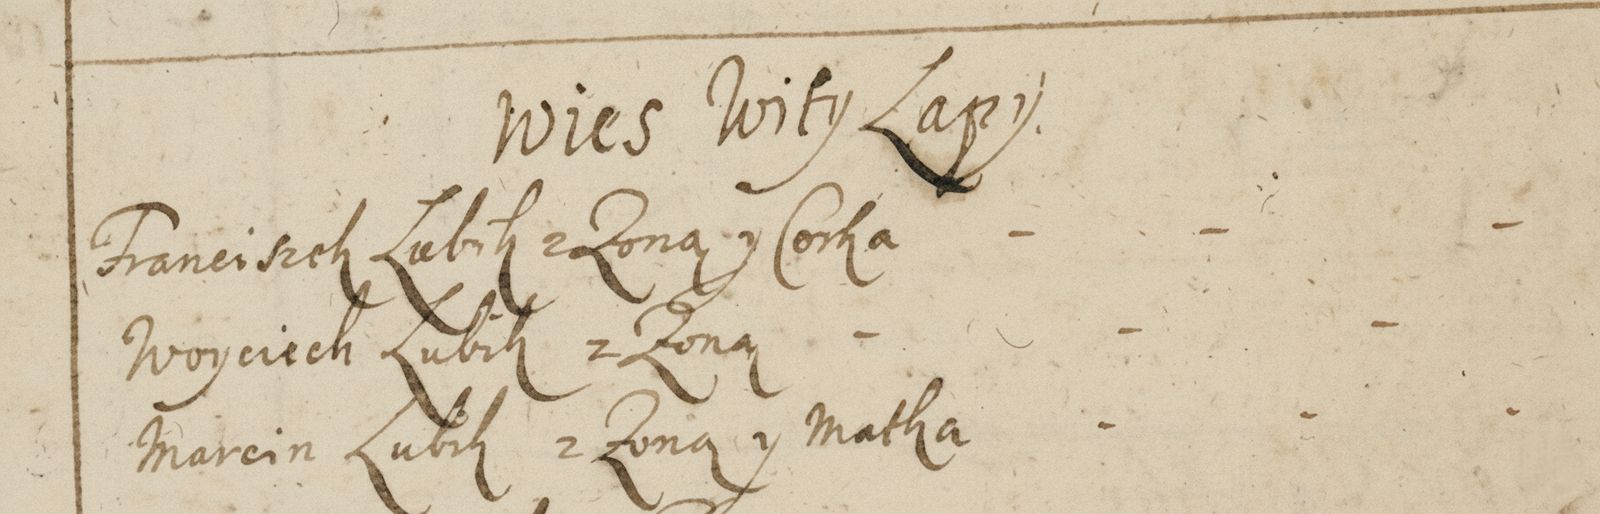 Wies Wity Łapy.
Franciszek Łubik z Zoną y Corką - - -
Woyciech Łubik z Zoną - - -
Marcin Łubik z Zoną y Matką - - -